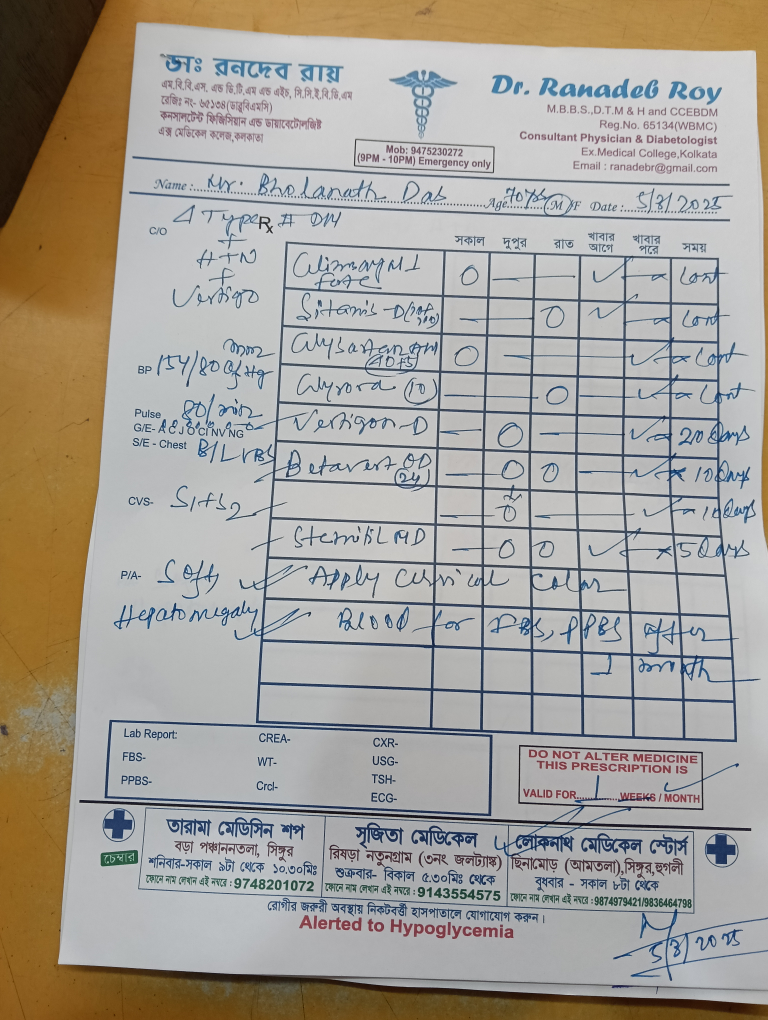 ডাঃ রনদেব রায়
এম.বি.বি.এস, এন্ড ডি.টি.এম এন্ড এইচ, সি.সি.ই.বি.ডি.এম
রেজিঃ নং- ৬৫১৩৪(ডাব্লুবিএমসি)
কনসালটেন্ট ফিজিসিয়ান এন্ড ডায়াবেটোলজিষ্ট
এক্স মেডিকেল কলেজ,কলকাতা
Mob: 9475230272
(9PM - 10PM) Emergency only
Dr. Ranadeb Roy
M.B.B.S.,D.T.M & H and CCEBDM
Reg.No. 65134(WBMC)
Consultant Physician & Diabetologist
Ex.Medical College,Kolkata
Email : ranadebr@gmail.com
Name : Mr. Bholanath Das Age 70 yrs M/F Date : 5/8/2025
C/O Type II DM
Rx
+
HTN
+
Vertigo
BP 154/80 mm of Hg
Pulse 80/min
G/E- A C J O CI NV NG
S/E - Chest B/L VBS
CVS- S1+S2
P/A- Soft
Hepatomegaly
সকাল দুপুর রাত খাবার আগে খাবার পরে সময়
M1 forte O — — ✓ — x Cont
— — O ✓ — x Cont
O — — — ✓ x Cont
(10) — — O — ✓ x Cont
Vertigon-D — O — — ✓ x 20 Days
Betavert OD (24) — O O — ✓ x 10 Days
— O — — ✓ x 10 Days
Stemitil MD — O O ✓ — x 5 Days
Apply Cervical Colar
Blood for FBS, PPBS after
1 month
Lab Report:
FBS-
PPBS-
CREA-
WT-
Crcl-
CXR-
USG-
TSH-
ECG-
DO NOT ALTER MEDICINE
THIS PRESCRIPTION IS
VALID FOR 1 WEEKS / MONTH
চেম্বার
তারামা মেডিসিন শপ
বড়া পঞ্চাননতলা, সিঙ্গুর
শনিবার-সকাল ৯টা থেকে ১০.৩০মিঃ
ফোনে নাম লেখান এই নম্বরে : 9748201072
সৃজিতা মেডিকেল
রিষড়া নতুনগ্রাম (৩নং জলট্যাঙ্ক)
শুক্রবার- বিকাল ৫.৩০মিঃ থেকে
ফোনে নাম লেখান এই নম্বরে : 9143554575
লোকনাথ মেডিকেল স্টোর্স
ছিনামোড় (আমতলা),সিঙ্গুর,হুগলী
বুধবার - সকাল ৮টা থেকে
ফোনে নাম লেখান এই নম্বরে :9874979421/9836464798
রোগীর জরুরী অবস্থায় নিকটবর্তী হাসপাতালে যোগাযোগ করুন।
Alerted to Hypoglycemia
5/8/2025